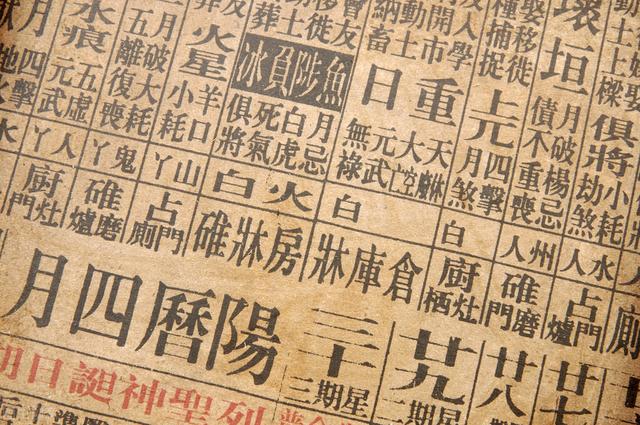 土上樑
俱將
小耗
劫煞
人水
占門
爐
廿七
壞垣
月破楊忌
債不重喪
人州
碓磨
門
廿八
娶移徙
種捕捉
上元
四擊
月煞
白
廚灶
栖
廿九
星期二
友人學
開市
動土
納畜
重日
天
大空
元武
無祿
白
倉庫牀
三十
星期三
會友
移徙
土
葬
魚陟負冰
月忌
白虎
死氣
俱將
火白
房牀碓
火星
羊口
小耗
山丫
占門
廁
月破大耗
五離復喪
鬼丫
碓磨
爐
水痕
五虛
元武
人丫
廚灶
門
月
四擊
地火
陽曆四月
列聖神誕日期